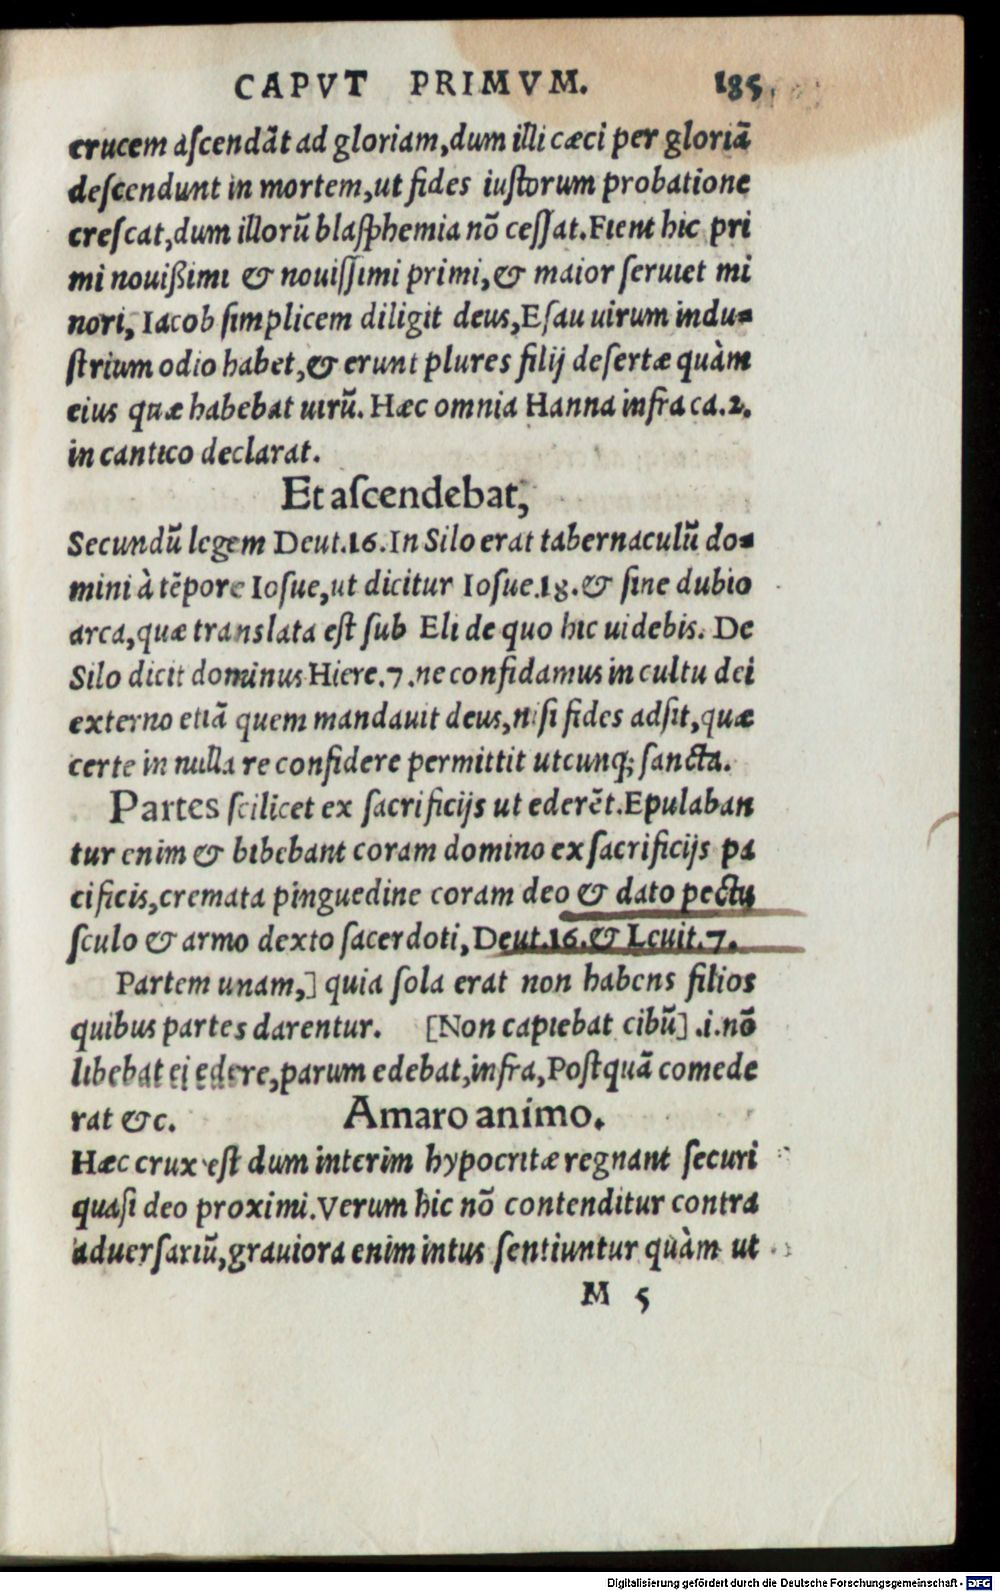 CAPVT PRIMVM. 185
crucem ascendãt ad gloriam, dum illi cæci per gloriã
descendunt in mortem, ut fides iustorum probatione
crescat, dum illorũ blasphemia nõ cessat. Fient hic pri
mi nouißimi & nouissimi primi, & maior seruiet mi
nori, Iacob simplicem diligit deus, Esau uirum indu-
strium odio habet, & erunt plures filij desertæ quàm
eius quæ habebat uirũ. Hæc omnia Hanna infra ca. 2.
in cantico declarat.
Et ascendebat,
Secundũ legem Deut. 16. In Silo erat tabernaculũ do-
mini à tẽpore Iosue, ut dicitur Iosue. 18. & sine dubio
arca, quæ translata est sub Eli de quo hic uidebis. De
Silo dicit dominus Hiere. 7. ne confidamus in cultu dei
externo etiã quem mandauit deus, nisi fides adsit, quæ
certe in nulla re confidere permittit utcunq; sancta.
Partes scilicet ex sacrificijs ut ederẽt. Epulaban
tur enim & bibebant coram domino ex sacrificijs pa
cificis, cremata pinguedine coram deo & dato pectu
sculo & armo dexto sacerdoti, Deut. 16. & Leuit. 7.
Partem unam,] quia sola erat non habens filios
quibus partes darentur. [Non capiebat cibũ] .i. nõ
libebat ei edere, parum edebat, infra, Postquã comede
rat &c. Amaro animo.
Hæc crux est dum interim hypocritæ regnant securi
quasi deo proximi. Verum hic nõ contenditur contra
aduersariũ, grauiora enim intus sentiuntur quàm ut
M 5
Digitalisierung gefördert durch die Deutsche Forschungsgemeinschaft - DFG